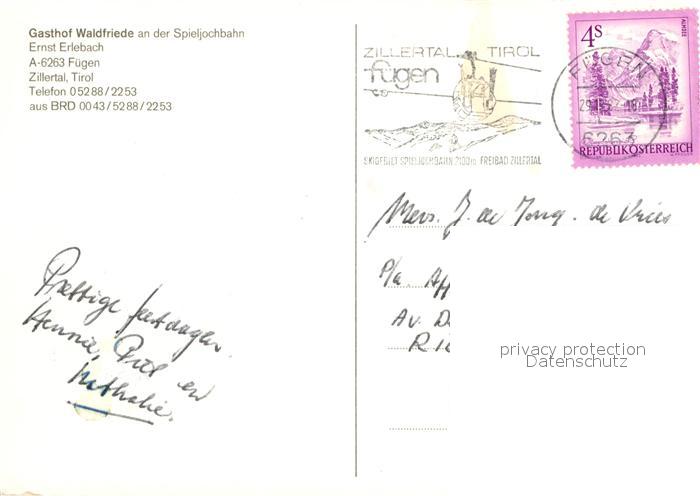 Gasthof Waldfriede an der Spieljochbahn
Ernst Erlebach
A-6263 Fügen
Zillertal, Tirol
Telefon 05288/2253
aus BRD 0043/5288/2253
ZILLERTAL TIROL
fügen
SKIGEBIET SPIELJOCHBAHN 2100m FREIBAD ZILLERTAL
4s
ALMSEE
FÜGEN
6263
REPUBLIK ÖSTERREICH
Mevr. J. de Jong - de Vries
P/a
Av.
privacy protection
Datenschutz
Prettige feestdagen
Hennie, en
Nathalie.